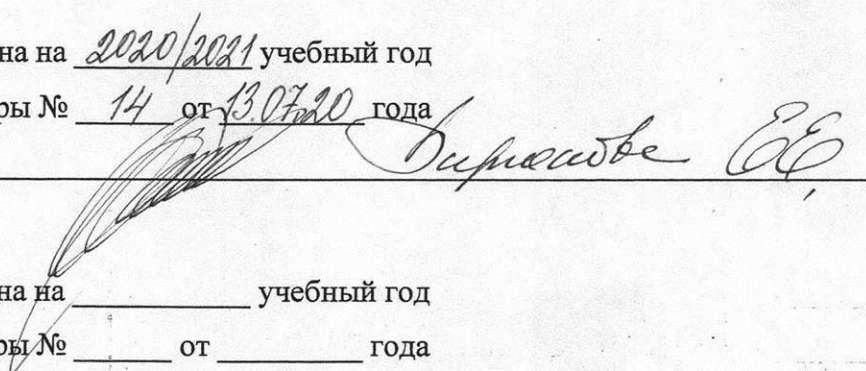 на на 2020/2021 учебный год
ры № 14 от 13.07.20 года
Е.Е.
на на ____________ учебный год
ры № _______ от __________ года